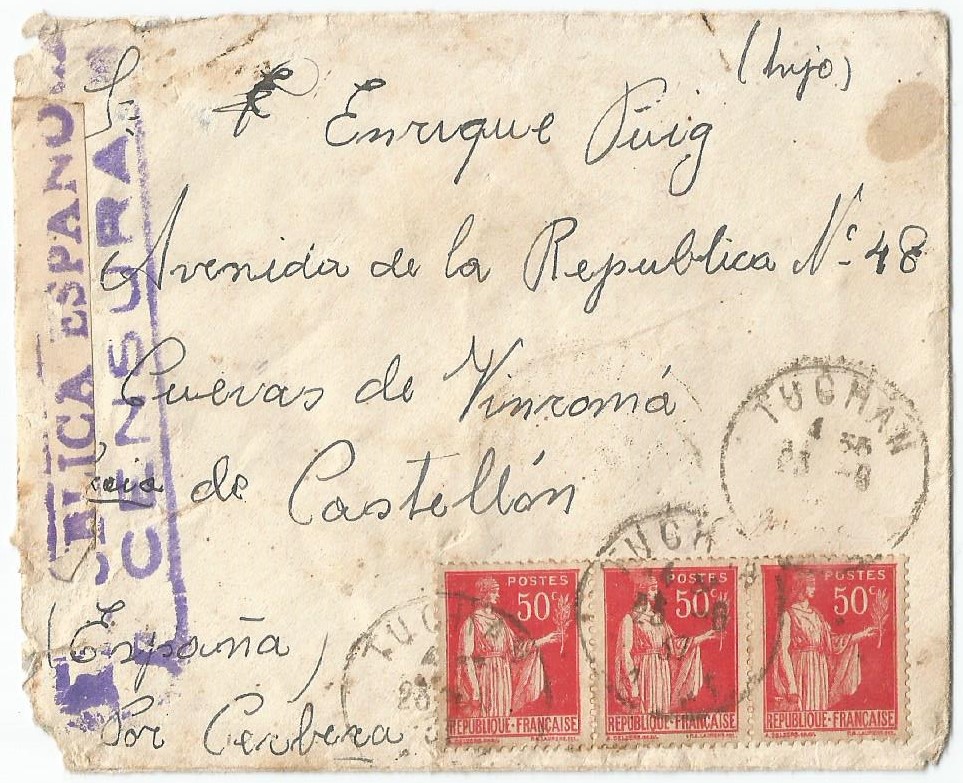 (hijo)
Enrique Puig
Avenida de la Republica Nº 48
Cuevas de Vinromá
de Castellón
(España)
Por Cerbera
BLICA ESPAÑO
CENSURA
TUCHAN
TUCH
TUCHA
23
37
POSTES
50c
REPUBLIQUE-FRANÇAISE
POSTES
50c
REPUBLIQUE-FRANÇAISE
POSTES
50c
REPUBLIQUE-FRANÇAISE